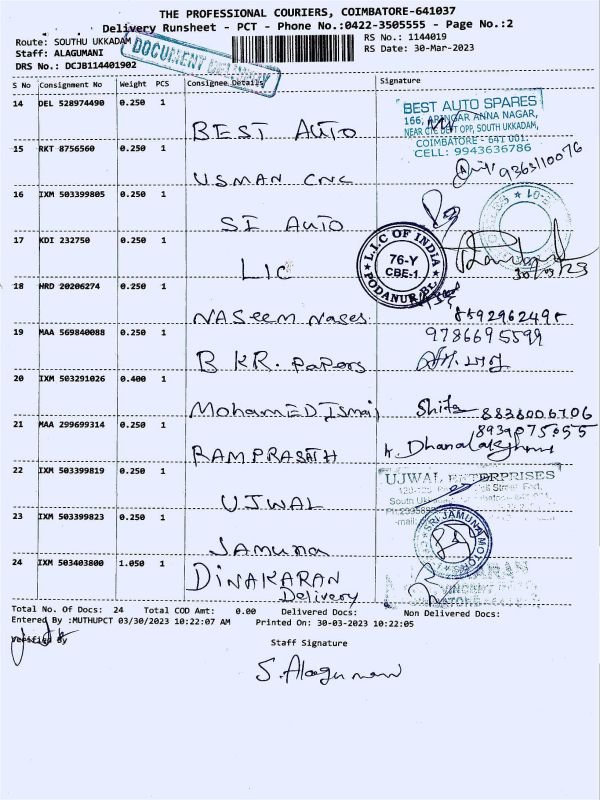 THE PROFESSIONAL COURIERS, COIMBATORE-641037
Delivery Runsheet - PCT - Phone No.:0422-3505555 - Page No.:2
Route: SOUTHU UKKADAM
RS No.: 1144019
Staff: ALAGUMANI
RS Date: 30-Mar-2023
DRS No.: DCJB114401902
DOCUMENT DELIVERY
S No Consignment No Weight PCS Consignee Details Signature
14 DEL 528974490 0.250 1
BEST AUTO
BEST AUTO SPARES
166, ARINGAR ANNA NAGAR,
NEAR CTC DEPT OPP, SOUTH UKKADAM,
COIMBATORE - 641 001.
CELL: 9943636786
15 RKT 8756560 0.250 1
USMAN CNC
9363110076
16 IXM 503399805 0.250 1
SI AUTO
17 KDI 232750 0.250 1
LIC
L.I.C OF INDIA
76-Y
CBE-1
PODANUR BL.
30/03/23
18 HRD 20206274 0.250 1
NASeem Nases
8592962495
19 MAA 569840088 0.250 1
B KR. PaPers
9786695599
20 IXM 503291026 0.400 1
MohamEDIsmai
8838006706
21 MAA 299699314 0.250 1
RAMPRASATH
8939075055
K. Dhanalakshmi
22 IXM 503399819 0.250 1
UJWAL
UJWAL ENTERPRISES
23 IXM 503399823 0.250 1
Jamuna
SRI JAMUNA MOTORS
24 IXM 503403800 1.050 1
DINAKARAN
Delivery
Total No. Of Docs: 24 Total COD Amt: 0.00 Delivered Docs: Non Delivered Docs:
Entered By :MUTHUPCT 03/30/2023 10:22:07 AM Printed On: 30-03-2023 10:22:05
Verified By
Staff Signature
S. Alagumani